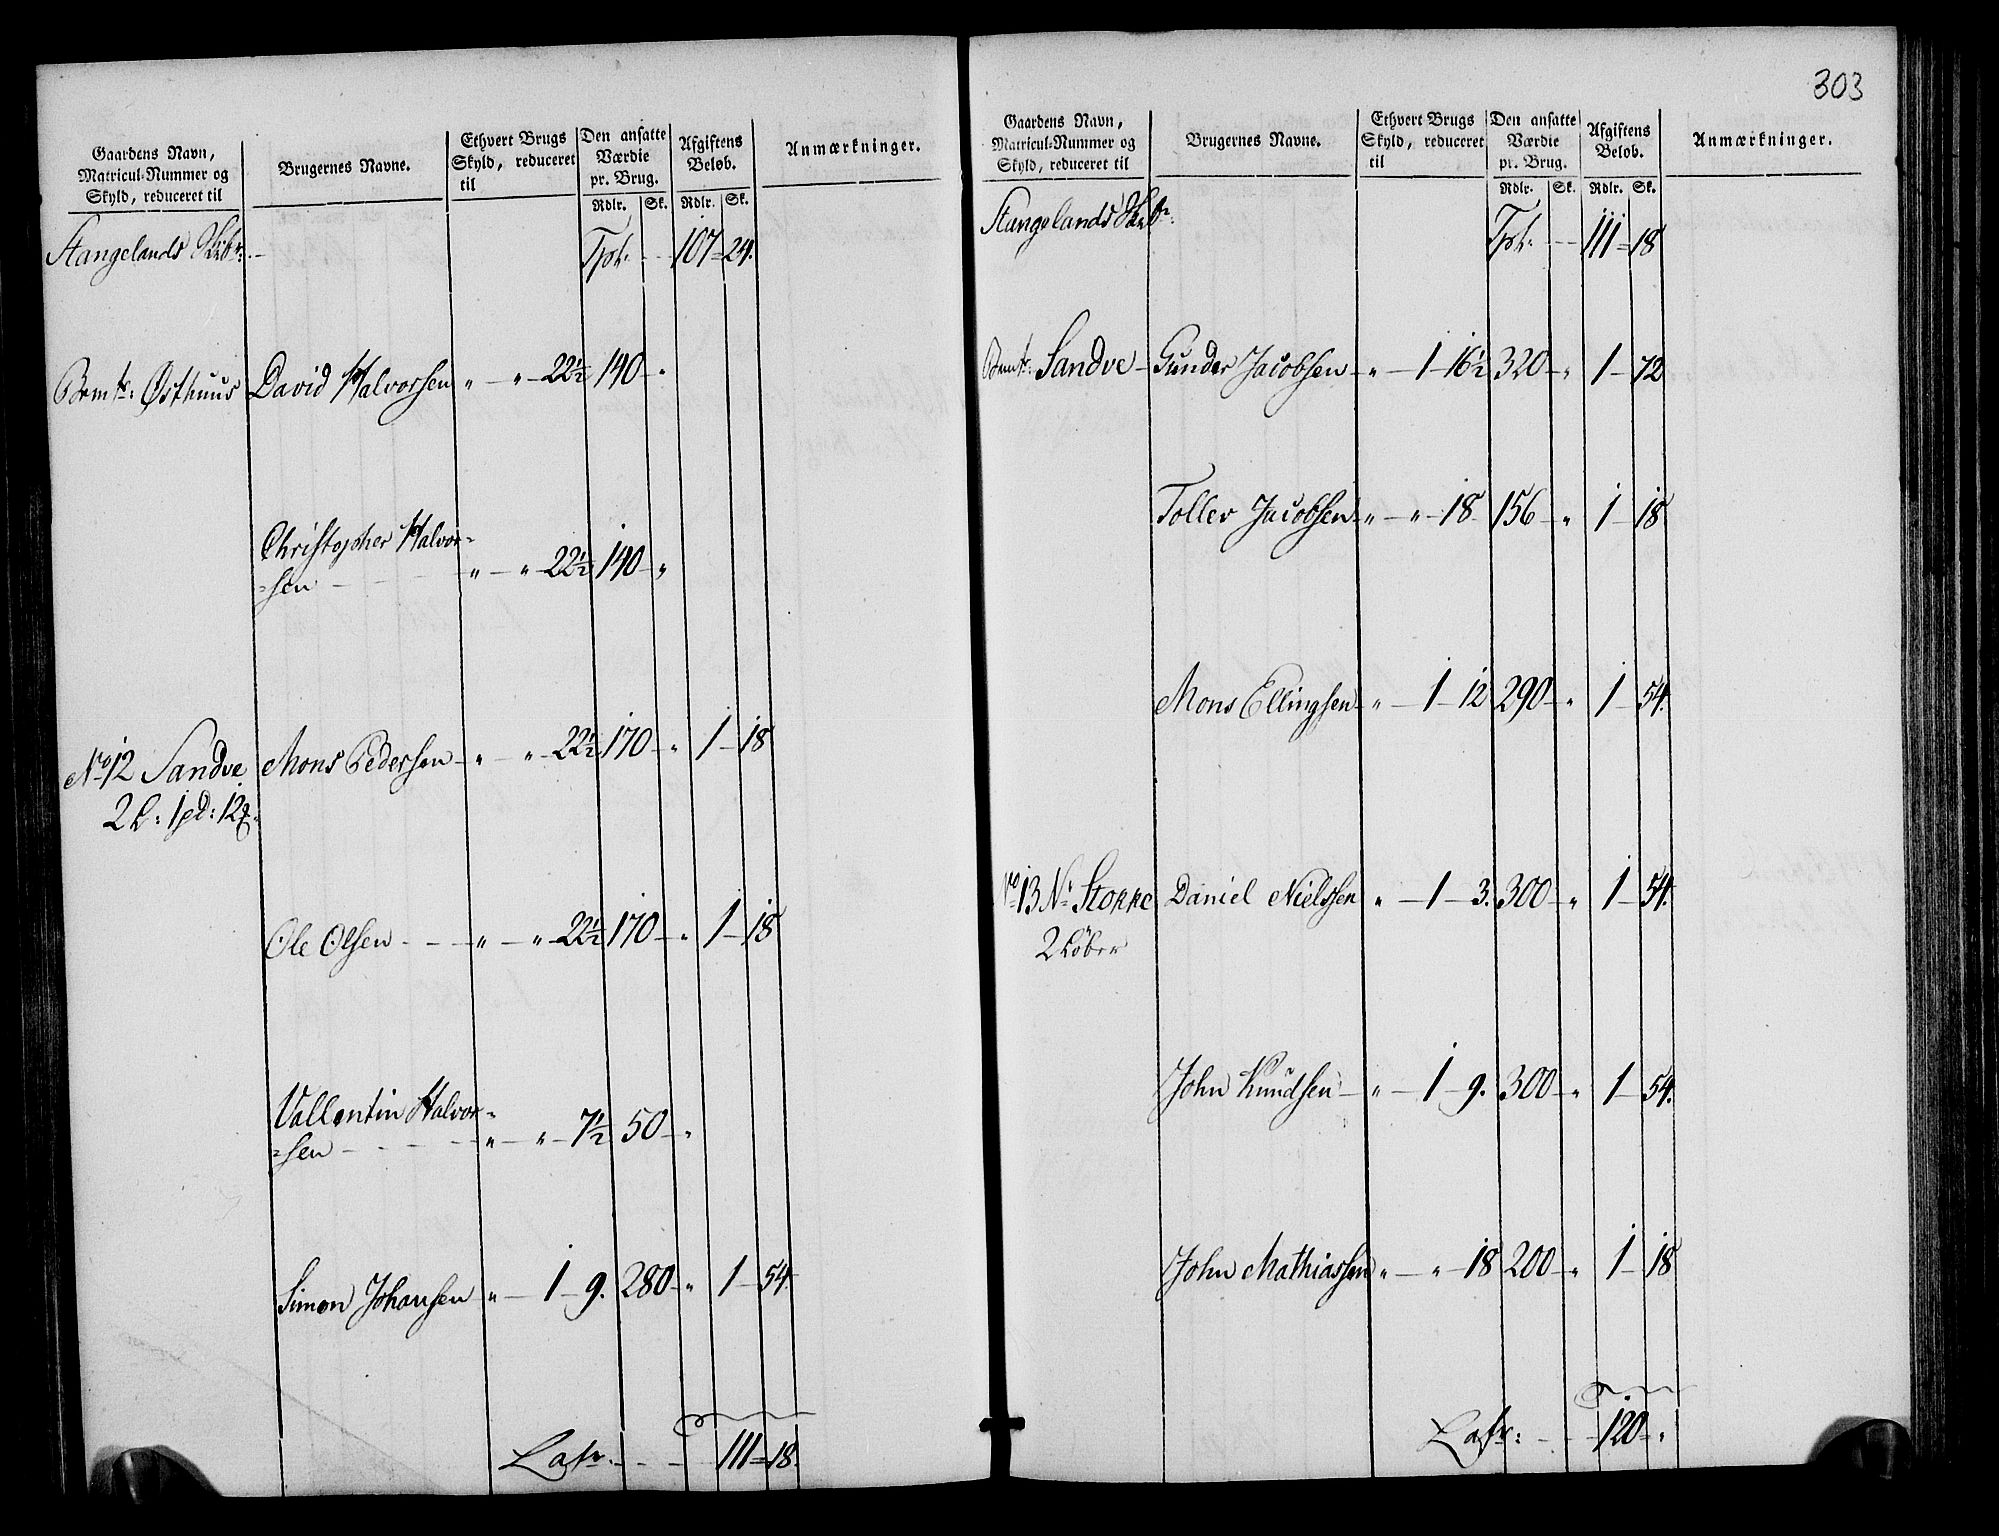 303
Gaardens Navn, Matricul-Nummer og Skyld, reduceret til
Brugernes Navne.
Ethvert Brugs Skyld, reduceret til
Den ansatte Værdie pr. Brug.
Afgiftens Beløb.
Anmærkninger.
Rdlr. Sk. Rdlr. Sk.
Stangelands Skibr: Tpt: 107 = 24.
Bemte: Østhuus David Halvorsen " — " — 22½ 140 — "
Christopher Halvor=
=sen " — " — 22½ 140 — "
No 12 Sandve Mons Pedersen " — " — 22½ 170 — " 1 — 18
2 L: 1 pd: 12
Ole Olsen " — " — 22½ 170 — " 1 — 18
Vallentin Halvor=
=sen " — " — 7½ 50 — "
Simon Johansen " — 1 — 9. 280 — " 1 — 54.
Latr: 111 = 18.
Gaardens Navn, Matricul-Nummer og Skyld, reduceret til
Brugernes Navne.
Ethvert Brugs Skyld, reduceret til
Den ansatte Værdie pr. Brug.
Afgiftens Beløb.
Anmærkninger.
Rdlr. Sk. Rdlr. Sk.
Stangelands Skibr: Tpt: 111 = 18
Bemte: Sandve Gunder Jacobsen " — 1 — 16½ 320 — " 1 — 72
Tollev Jacobsen " — " — 18 156 — " 1 — 18
Mons Ellingsen " — 1 — 12 290 — " 1 — 54.
No 13 Nr Stokke Daniel Nielssen " — 1 — 3. 300 — " 1 — 54.
2 Løber
John Knudsen " — 1 — 9. 300 — " 1 — 54.
John Mathiassen " — " — 18 200 — " 1 — 18
Latr: 120 — "